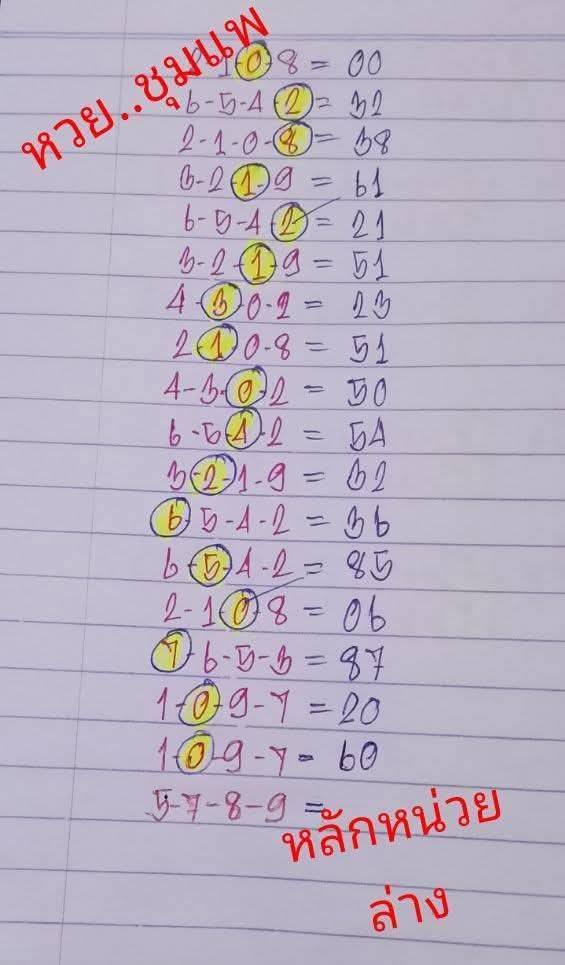 หวย..ชุมแพ
1-0-8 = 00
6-5-4-2 = 32
2-1-0-8 = 38
3-2-1-9 = 61
6-5-4-2 = 21
3-2-1-9 = 51
4-3-0-2 = 23
2-1-0-8 = 51
4-3-0-2 = 50
6-5-4-2 = 54
3-2-1-9 = 32
6-5-4-2 = 36
6-5-4-2 = 85
2-1-0-8 = 06
7-6-5-3 = 87
1-0-9-7 = 20
1-0-9-7 = 60
5-7-8-9 =
หลักหน่วย
ล่าง